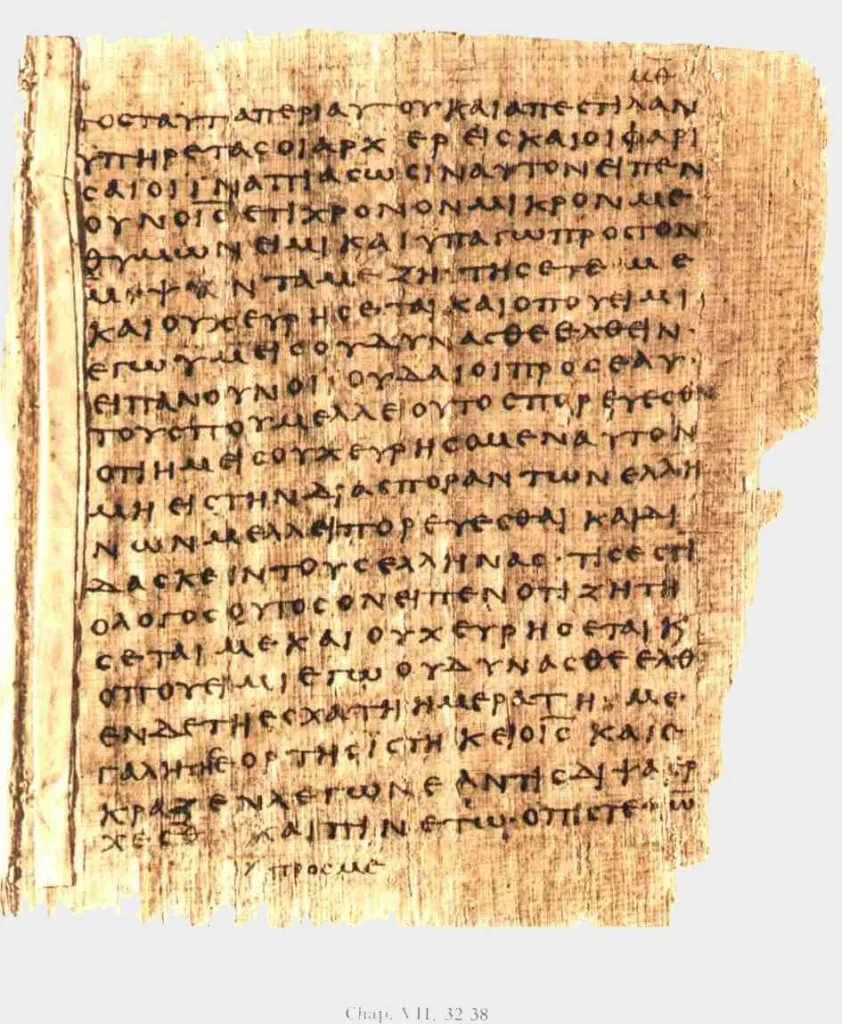 μθ
τοσταυταπεριαυτουκαιαπεστιλαν
υπηρετασοιαρχερεισκαιοιφαρι
σαιοιϊναπιασωσιναυτονειπεν
ουνοι̅σ̅ετιχρονονμικρονμε
θυμωνειμικαιυπαγωπροστον
νταμεζητησετεμε
καιουχευρησεταικαιοπουειμι
εγωϋμεισουδυνασθεελθειν·
ειπανουνοιϊουδαιοιπροσεαυ·
τουσπουμελλειουτοσπορευεσθ
οτιημεισουχευρησομεναυτον
μηειστηνδιασπορανтωνελλη
νωνμελλειπορευεσθαικαιδι
δασκεινтουσελληνασ·τισεστι
ολογοσουτοσονειπενοτιζητη
σεταιμεκαιουχευρησεταικ
οπουειμιεγωουδυνασθεελθ
ενδετηεσχατηημερατημε·
γαλητηεορτησϊστηκειοι̅σ̅καιε
κραζενλεγωνεαντισδιψαερ
χεσθ καιπινετω·οπιστε ω
προσμε
Chap. VII, 32-38